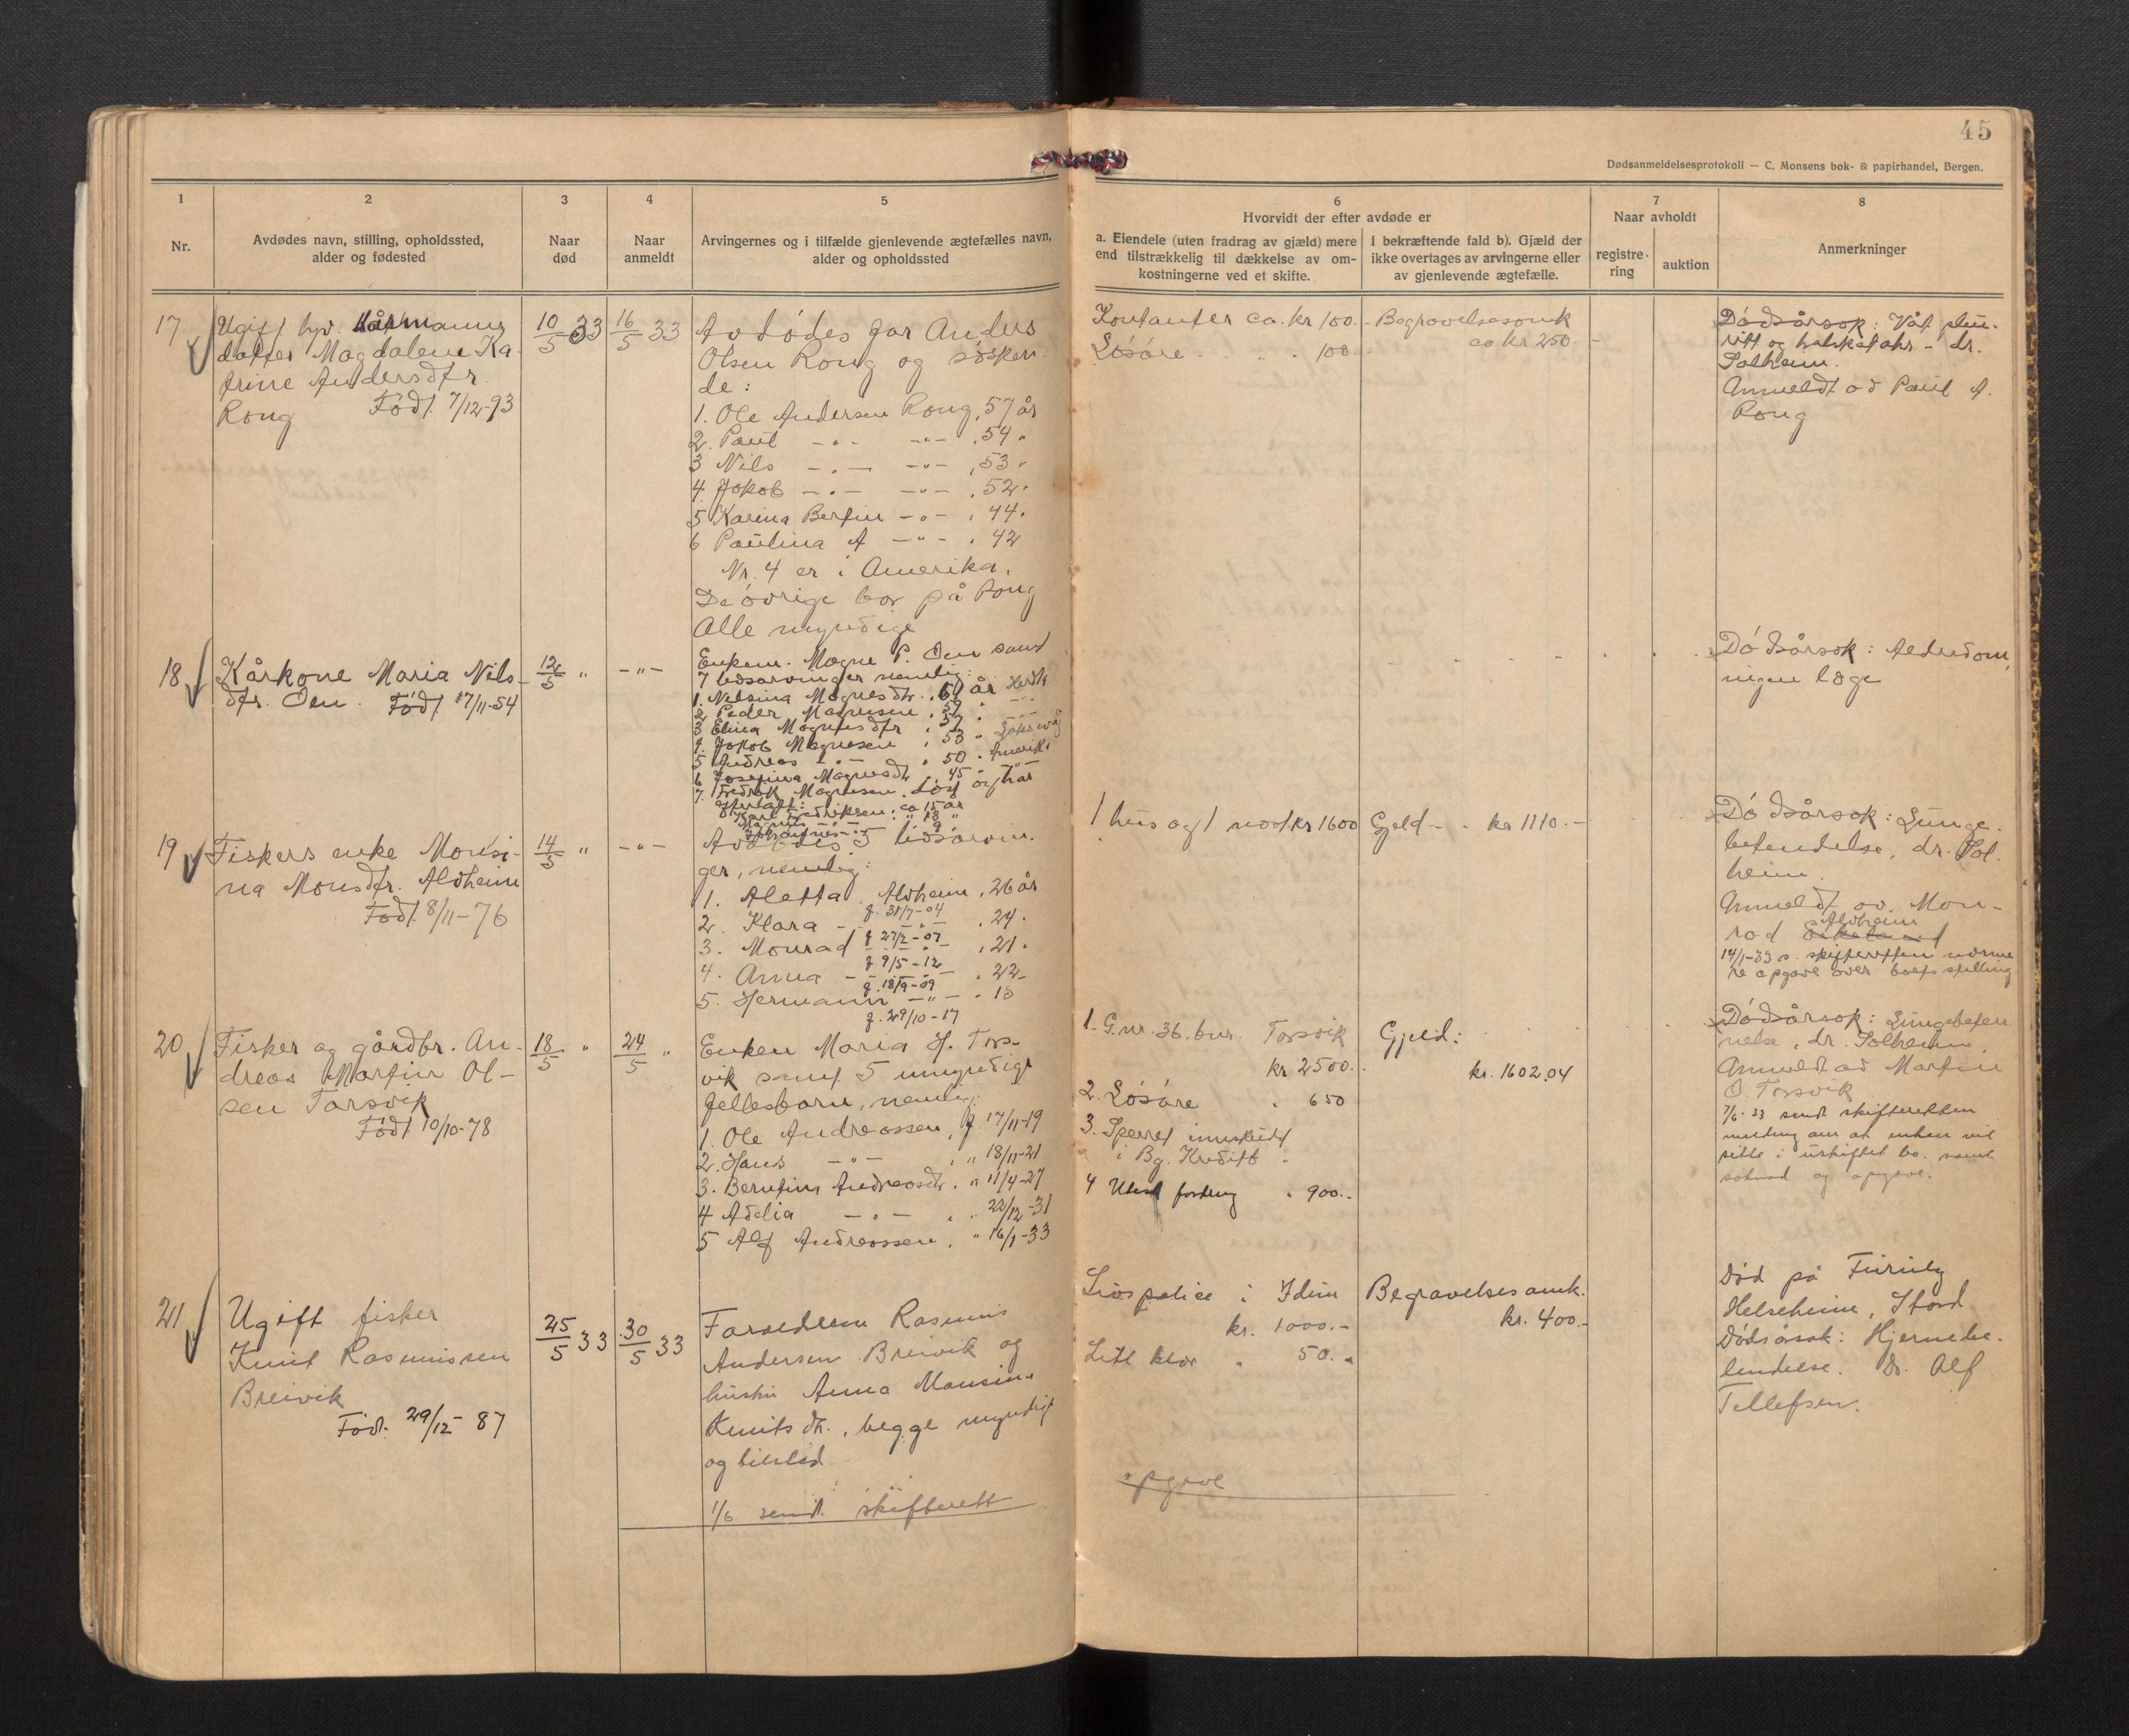 45
Dødsanmeldelsesprotokoll — C. Monsens bok- & papirhandel, Bergen.
1
Nr.
2
Avdødes navn, stilling, opholdssted,
alder og fødested
3
Naar
død
4
Naar
anmeldt
5
Arvingernes og i tilfælde gjenlevende ægtefælles navn,
alder og opholdssted
6
Hvorvidt der efter avdøde er
a. Eiendele (uten fradrag av gjæld) mere
end tilstrækkelig til dækkelse av om-
kostningerne ved et skifte.
I bekræftende fald b). Gjæld der
ikke overtages av arvingerne eller
av gjenlevende ægtefælle.
7
Naar avholdt
registre-
ring
auktion
8
Anmerkninger
17
Ugift
datter Magdalene Ka-
trine Andersdtr.
Rong Født 7/12-93
10/5 33
16/5 33
Avdødes far Anders
Olsen Rong og søsken-
de:
1. Ole Andersen Rong, 57 år
2. Paul -"- -"- , 54 "
3 Nils -"- -"- , 53 "
4. Jakob -"- -"- , 52 "
5 Karina Bertin -"- , 44 "
6 Paulina A -"- , 42
Nr. 4 er i Amerika.
De øvrige bor på Rong
Alle myndige
Kontanter ca. kr 100.-
Løsøre " . 100
Begravelsesomk
ca kr 250.-
Dødsårsok:
dr.
Solheim.
Anmeldt av Paul A.
Rong
18
Kårkone Maria Nils-
dtr. Oen. Født 7/11-54
12/5 "
-"-
Enkem. Magne P. Oen samt
7 livsarvinger nemlig:
1. Nilsina Magnesdtr. , år
2 Peder Magnesen ,
3 Elina Magnesdtr , 57
4. Jakob Magnesen , 53 "
5 Andreas -"- , 50 " Amerika
6 Josefina Magnesdtr , 45 "
7. Fredrik Magnesen, død og har
efterlatt:
Fredriksen, ca 15 år
Dødsårsok: Alderdom,
ingen læge
19
Fiskers enke Monsi-
na Monsdtr. Aldheim
Født 8/11-76
14/5 "
-"-
Avdødes 5 livsarvin-
ger, nemlig:
1. Aletta Aldheim, 26 år
f. 31/7-04
2. Klara -"- , 24 "
f 27/2-07
3. Monrad -"- , 21 "
f 9/5-12
4. Anna -"- , 22
f. 18/9-09
5. Hermann -"- . 15
f. 29/10-17
1 hus og 1 kr 1600
Gjeld - . kr 1110.-
Dødsårsok: Lunge-
betendelse, dr. Sol-
heim.
Anmeldt av Mon-
rad Aldheim
skifteretten nærme-
re opgave over boets stilling
20
Fisker og gårdbr. An-
dreas Martin Ol-
sen Torsvik
Født 10/10-78
18/5 "
24/5 "
Enken Maria H. Tors-
vik samt 5 umyndige
fellesbarn, nemlig:
1. Ole Andreassen, f. 17/11-19
2. Hans -"- , " 18/11-21
3. Berntina Andreasdtr. " 11/4-27
4 Adelia -"- , . 22/12-31
5 Alf Andreassen, " 16/1-33
1. G.nr. 36. bnr. Torsvik
kr 2500.-
2. Løsøre . 650
3. Sperret innskudt
i Bg. Kreditb .
4 fordring . 900.-
Gjeld:
kr. 1602.04
Dødsårsok: Lungebeten-
nelse, dr. Solheim
Anmeldt av Martin
O. Torsvik
7/6-33 sendt skifteretten
melding om at enken vil
sitte i uskiftet bo. samt
søknad og opgave.
21
Ugift fisker
Knut Rasmussen
Breivik
Født. 29/12-87
25/5 33
30/5 33
Foreldrene Rasmus
Andersen Breivik og
hustru Anna Monsine
Knutsdtr., begge myndige
og tilsted.
1/6 sendt skifterett
opgave
Livspolice i Idun
kr. 1000.-
Litt klær " 50.-
Begravelsesomk.
kr. 400.-
Død på Furuly
Helseheim, Stord
Dødsårsak: Hjernebe-
tendelse. Dr. Alf
Tellefsen.